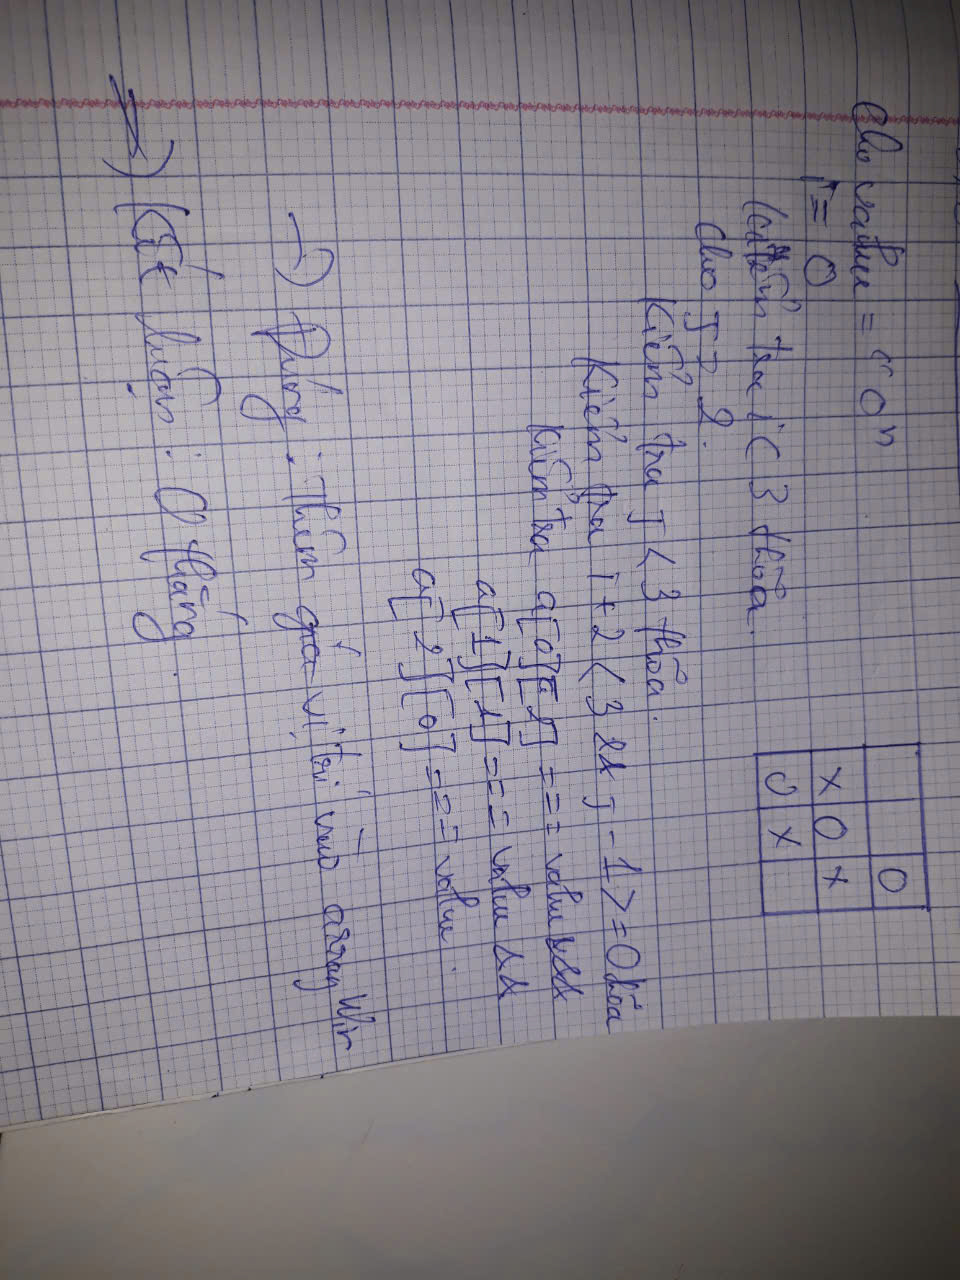 Cho value = "O"
i = 0
Kiểm tra i < 3 thõa.
Cho j = 2.
Kiểm tra j < 3 thõa.
Kiểm tra i + 2 < 3 && j - 1 >= 0 thõa
Kiểm tra a[0][2] === value &&
a[1][1] === value &&
a[2][0] === value.
→ Đúng : Thêm giá vị trí vào array Win
⇒ Kết luận : O thắng.
O
X O X
O X